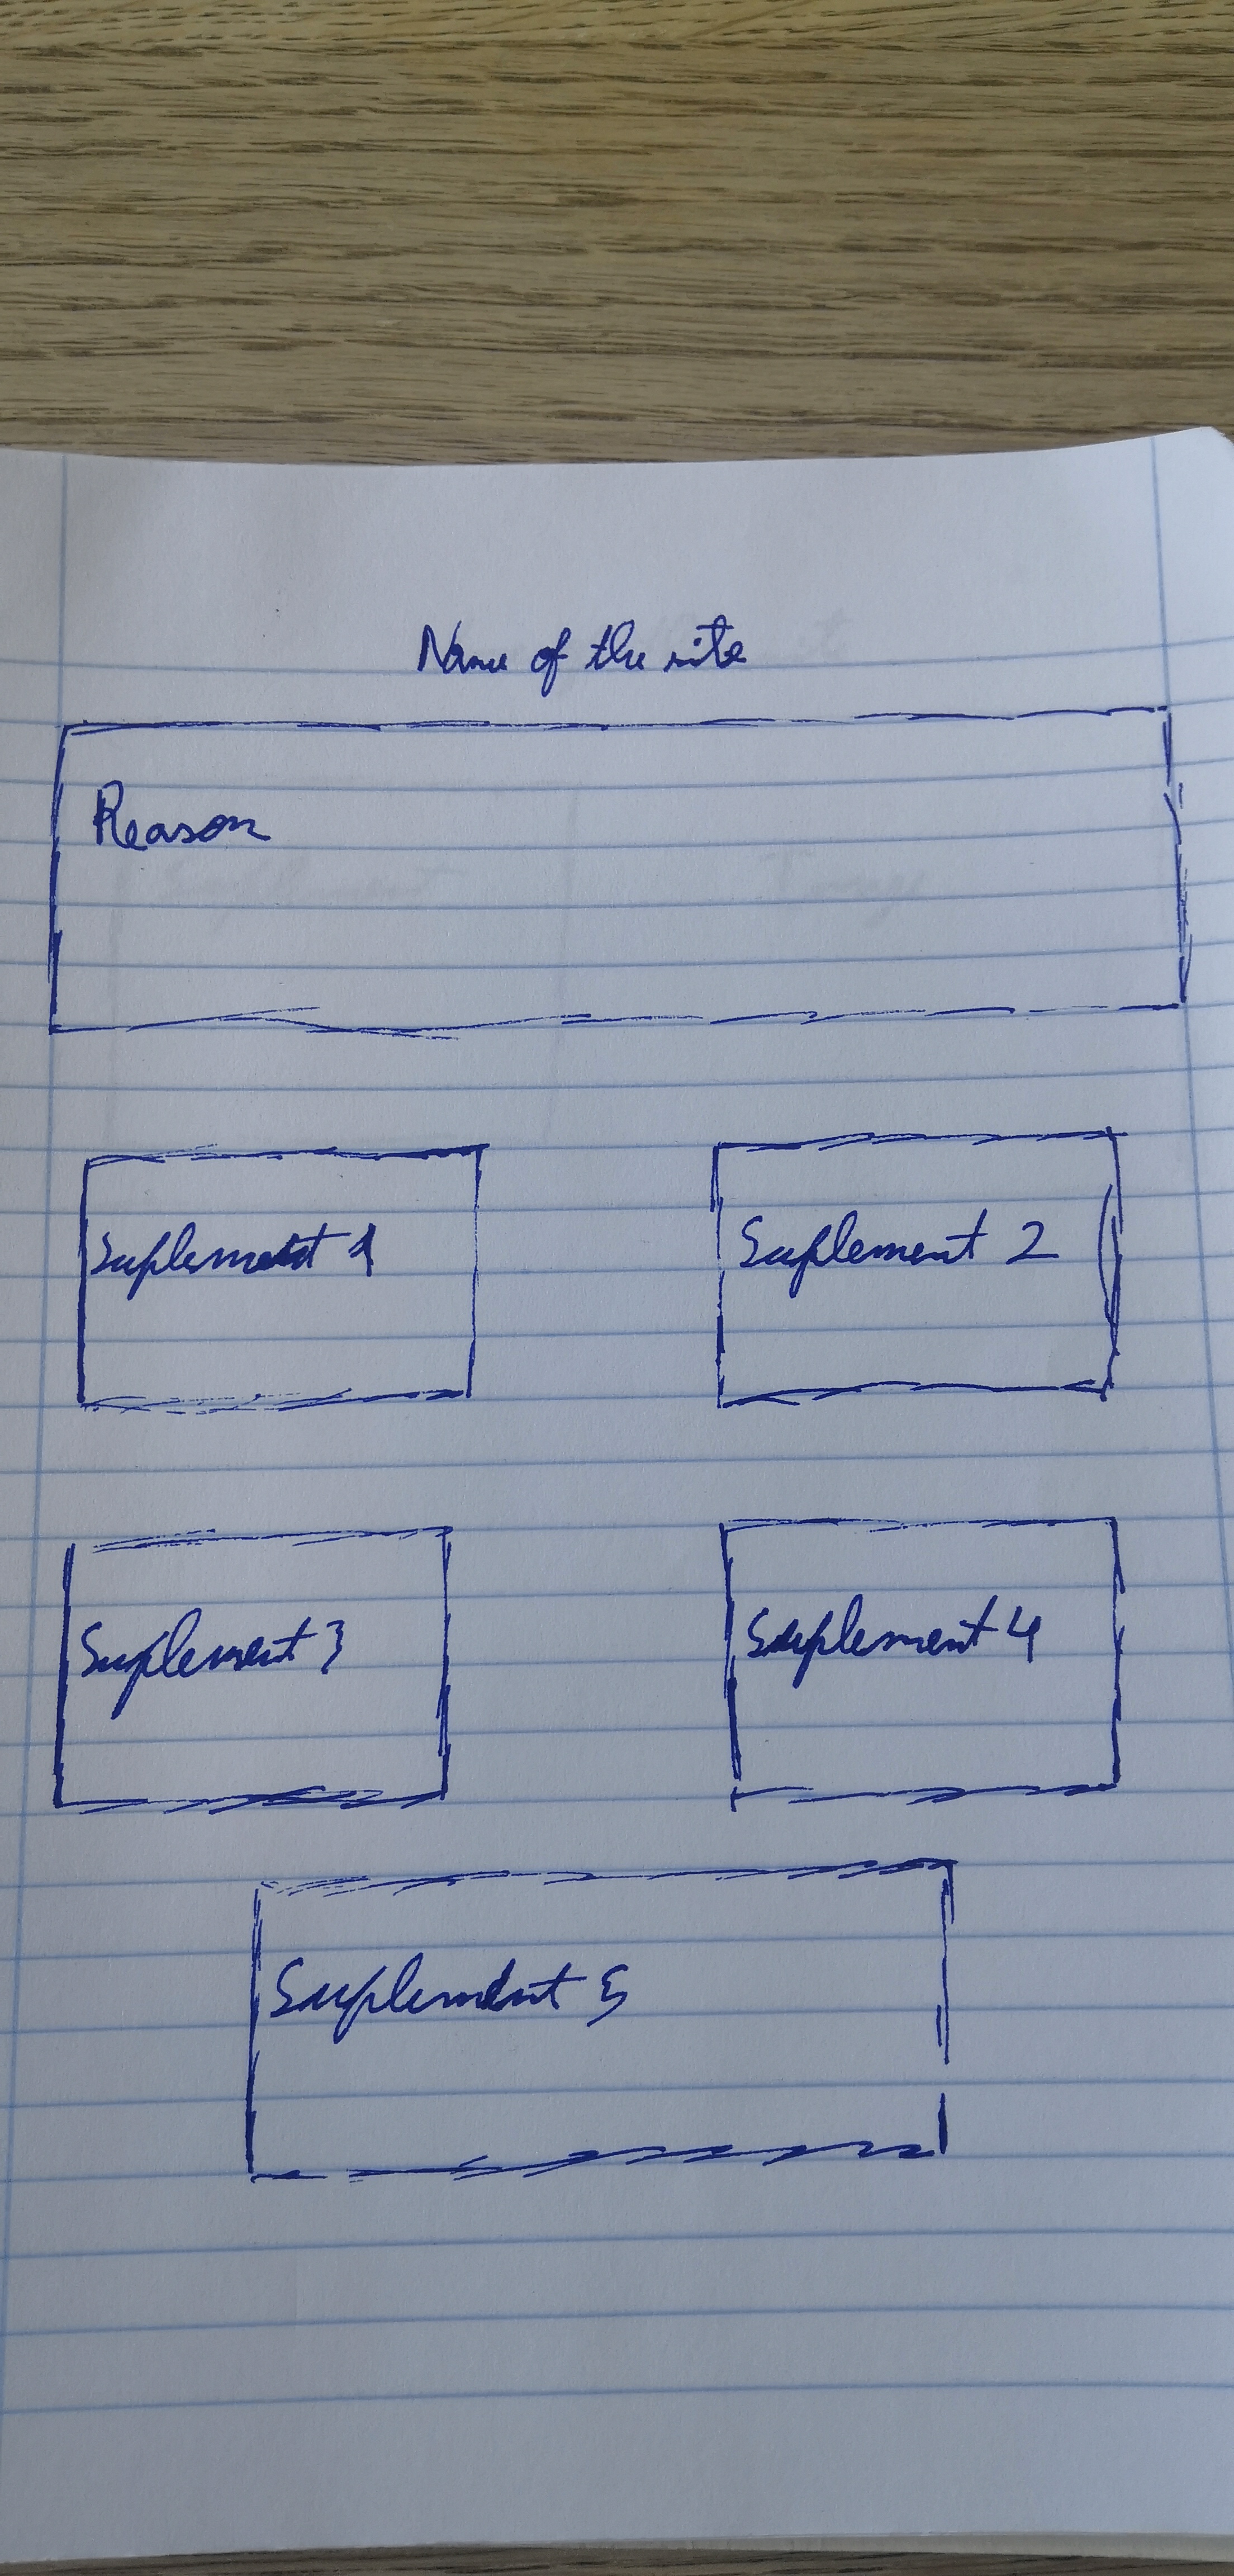 Name of the site
Reason
Suplement 1
Suplement 2
Suplement 3
Suplement 4
Suplement 5